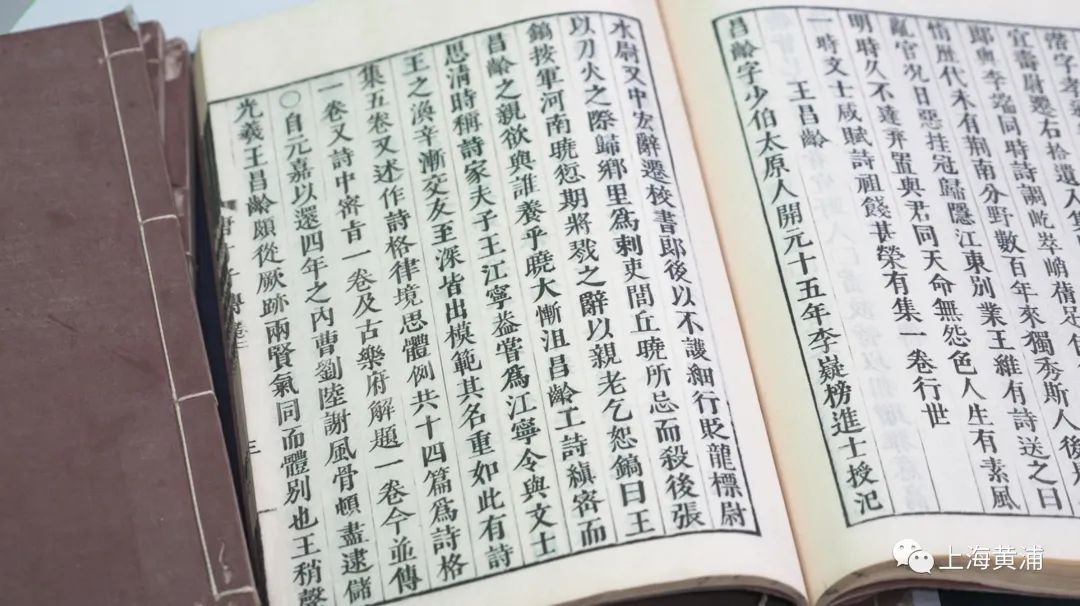 潛字孝
宜壽尉遷右拾遺入
郎與李端同時詩調屹崒峭蒨足佳
情歷代未有荆南分野數百年來獨秀斯人後是
亂官况日惡挂冠歸隱江東別業王維有詩送之曰
明時久不達弃置與君同天命無怨色人生有素風
一時文士咸賦詩祖餞甚榮有集一卷行世
王昌齡
昌齡字少伯太原人開元十五年李嶷榜進士授汜
水尉又中宏辭遷校書郎後以不護細行貶龍標尉
以刀火之際歸鄉里爲刺吏閭丘曉所忌而殺後張
鎬按軍河南曉愆期將戮之辭以親老乞恕鎬曰王
昌齡之親欲與誰養乎曉大慚沮昌齡工詩縝密而
思清時稱詩家夫子王江寧蓋嘗爲江寧令與文士
王之渙辛漸交友至深皆出模範其名重如此有詩
集五卷又述作詩格律境思體例共十四篇爲詩格
一卷又詩中密旨一卷及古樂府解題一卷今並傳
○自元嘉以還四年之內曹劉陸謝風骨頓盡逮儲
光羲王昌齡頗從厥跡兩賢氣同而體別也王稍聲
三
上海黄浦